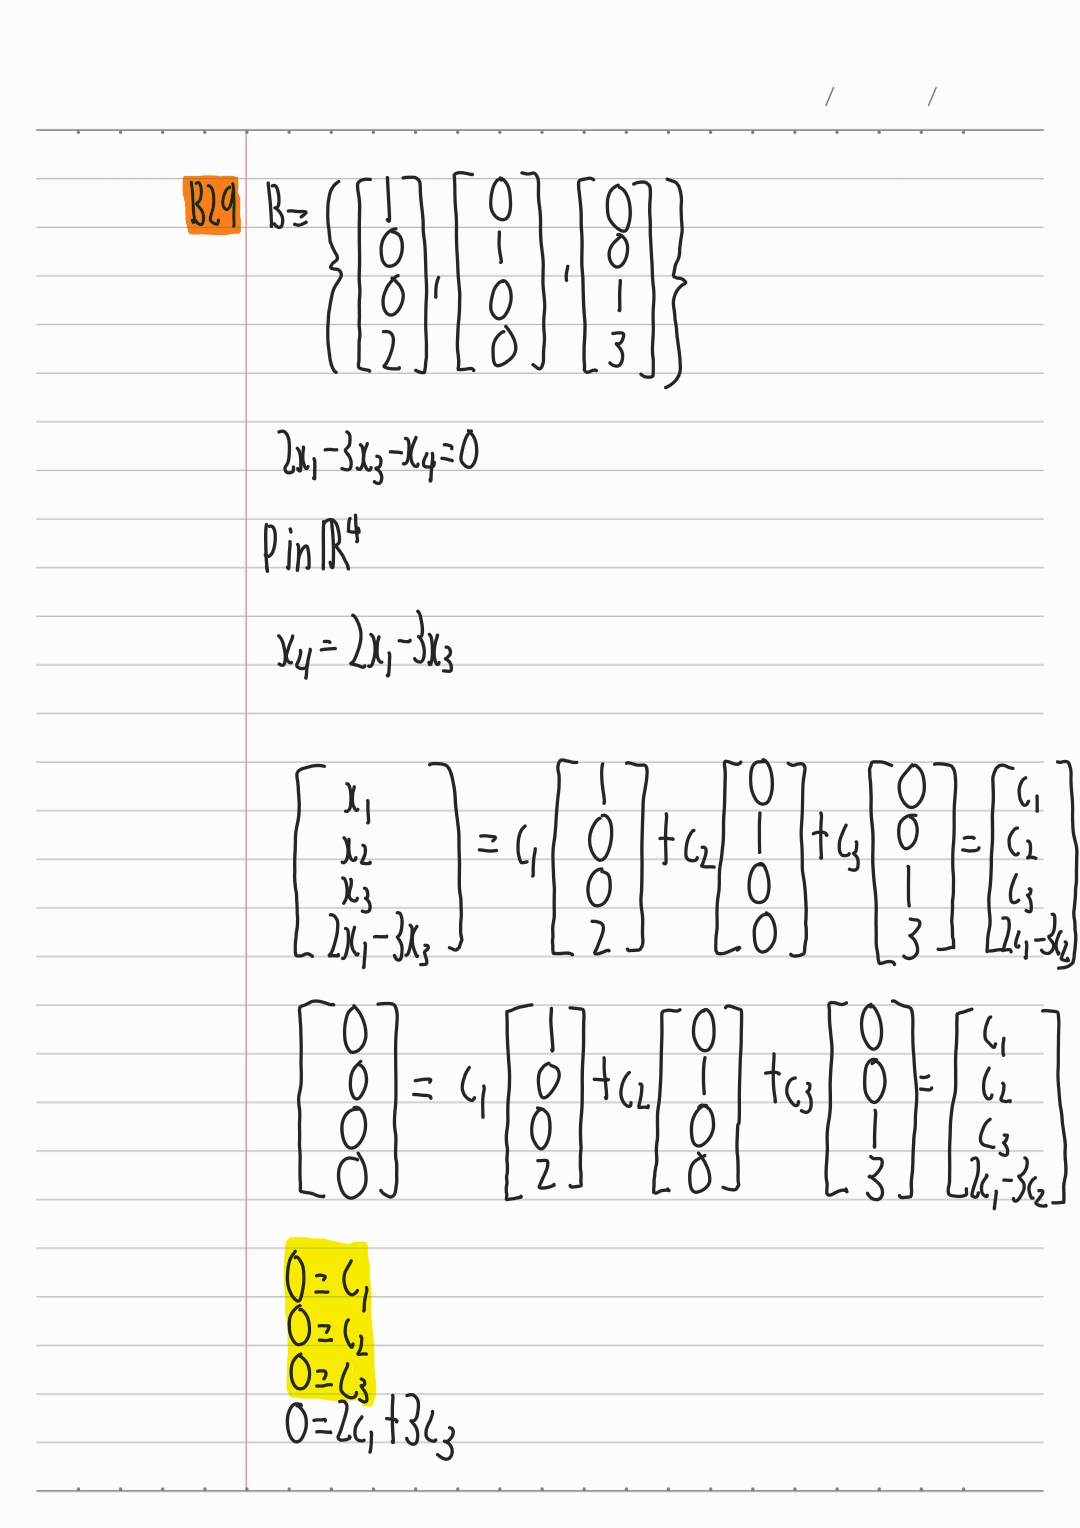 B29 B = { [1 0 0 2], [0 1 0 0], [0 0 1 3] }
2x₁ - 3x₃ - x₄ = 0
P in ℝ⁴
x₄ = 2x₁ - 3x₃
[x₁ x₂ x₃ 2x₁-3x₃] = c₁ [1 0 0 2] + c₂ [0 1 0 0] + c₃ [0 0 1 3] = [c₁ c₂ c₃ 2c₁-3c₂]
[0 0 0 0] = c₁ [1 0 0 2] + c₂ [0 1 0 0] + c₃ [0 0 1 3] = [c₁ c₂ c₃ 2c₁-3c₂]
0 = c₁
0 = c₂
0 = c₃
0 = 2c₁ + 3c₃